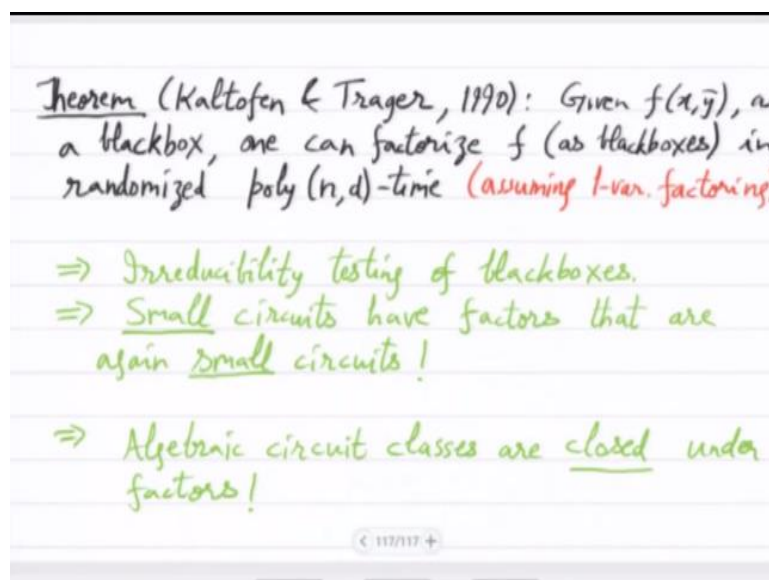 Theorem (Kaltofen & Trager, 1990): Given f(x,ȳ), a
a blackbox, one can factorize f (as blackboxes) in
randomized poly(n,d)-time (assuming 1-var. factoring
⇒ Irreducibility testing of blackboxes.
⇒ Small circuits have factors that are
again small circuits!
⇒ Algebraic circuit classes are closed under
factors!
< 117/117 +